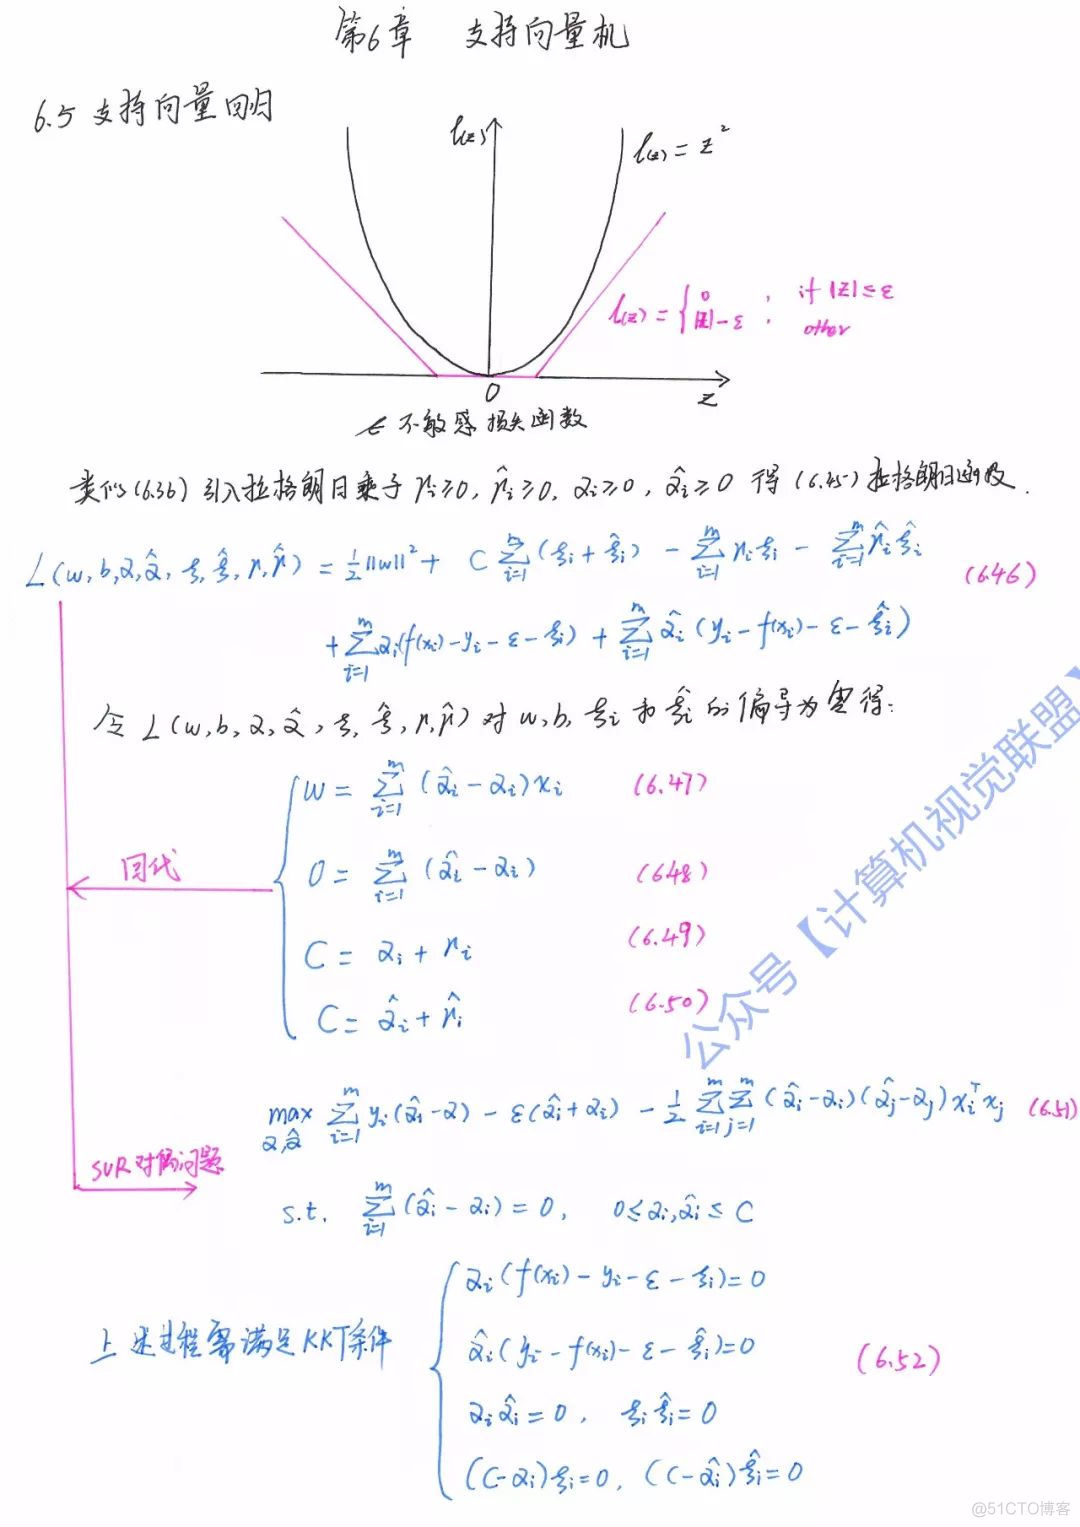 第6章 支持向量机
6.5 支持向量回归
l(z)
l(z) = z²
l(z) = { 0 ; if |z| ≤ ε
|z| - ε ; other
0
z
ε 不敏感损失函数
类似(6.36)引入拉格朗日乘子 μi≥0, μ̂i≥0, αi≥0, α̂i≥0 得(6.45)拉格朗日函数.
L(w,b,α,α̂,ξ,ξ̂,μ,μ̂) = ½||w||² + C∑_{i=1}^{m}(ξi + ξ̂i) - ∑_{i=1}^{m} μiξi - ∑_{i=1}^{m} μ̂iξ̂i (6.46)
+ ∑_{i=1}^{m} αi(f(xi) - yi - ε - ξi) + ∑_{i=1}^{m} α̂i(yi - f(xi) - ε - ξ̂i)
令 L(w,b,α,α̂,ξ,ξ̂,μ,μ̂) 对 w,b,ξi 和 ξ̂i 的偏导为零得:
w = ∑_{i=1}^{m} (α̂i - αi)xi (6.47)
回代
0 = ∑_{i=1}^{m} (α̂i - αi) (6.48)
C = αi + μi (6.49)
C = α̂i + μ̂i (6.50)
max_{α,α̂} ∑_{i=1}^{m} yi(α̂i - α) - ε(α̂i + αi) - ½∑_{i=1}^{m}∑_{j=1}^{m} (α̂i - αi)(α̂j - αj)xiᵀxj (6.51)
SVR对偶问题
s.t. ∑_{i=1}^{m} (α̂i - αi) = 0, 0 ≤ αi, α̂i ≤ C
上述过程需满足KKT条件
αi(f(xi) - yi - ε - ξi) = 0
α̂i(yi - f(xi) - ε - ξ̂i) = 0
(6.52)
αiα̂i = 0, ξiξ̂i = 0
(C - αi)ξi = 0, (C - α̂i)ξ̂i = 0
公众号【计算机视觉联盟】
@51CTO博客